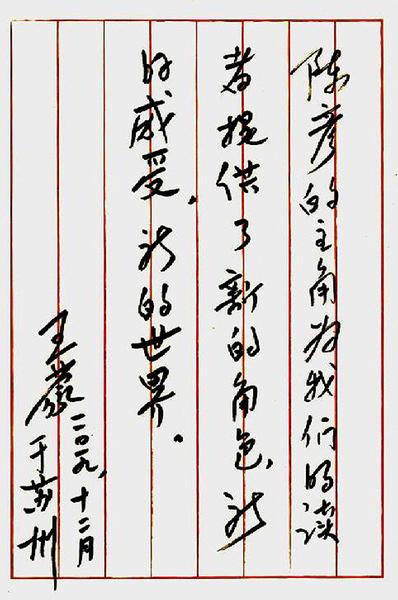 陈彦的主角为我们的读
者提供了新的角色,新
的感受,新的世界。
王蒙
二〇一九,十二月
于苏州